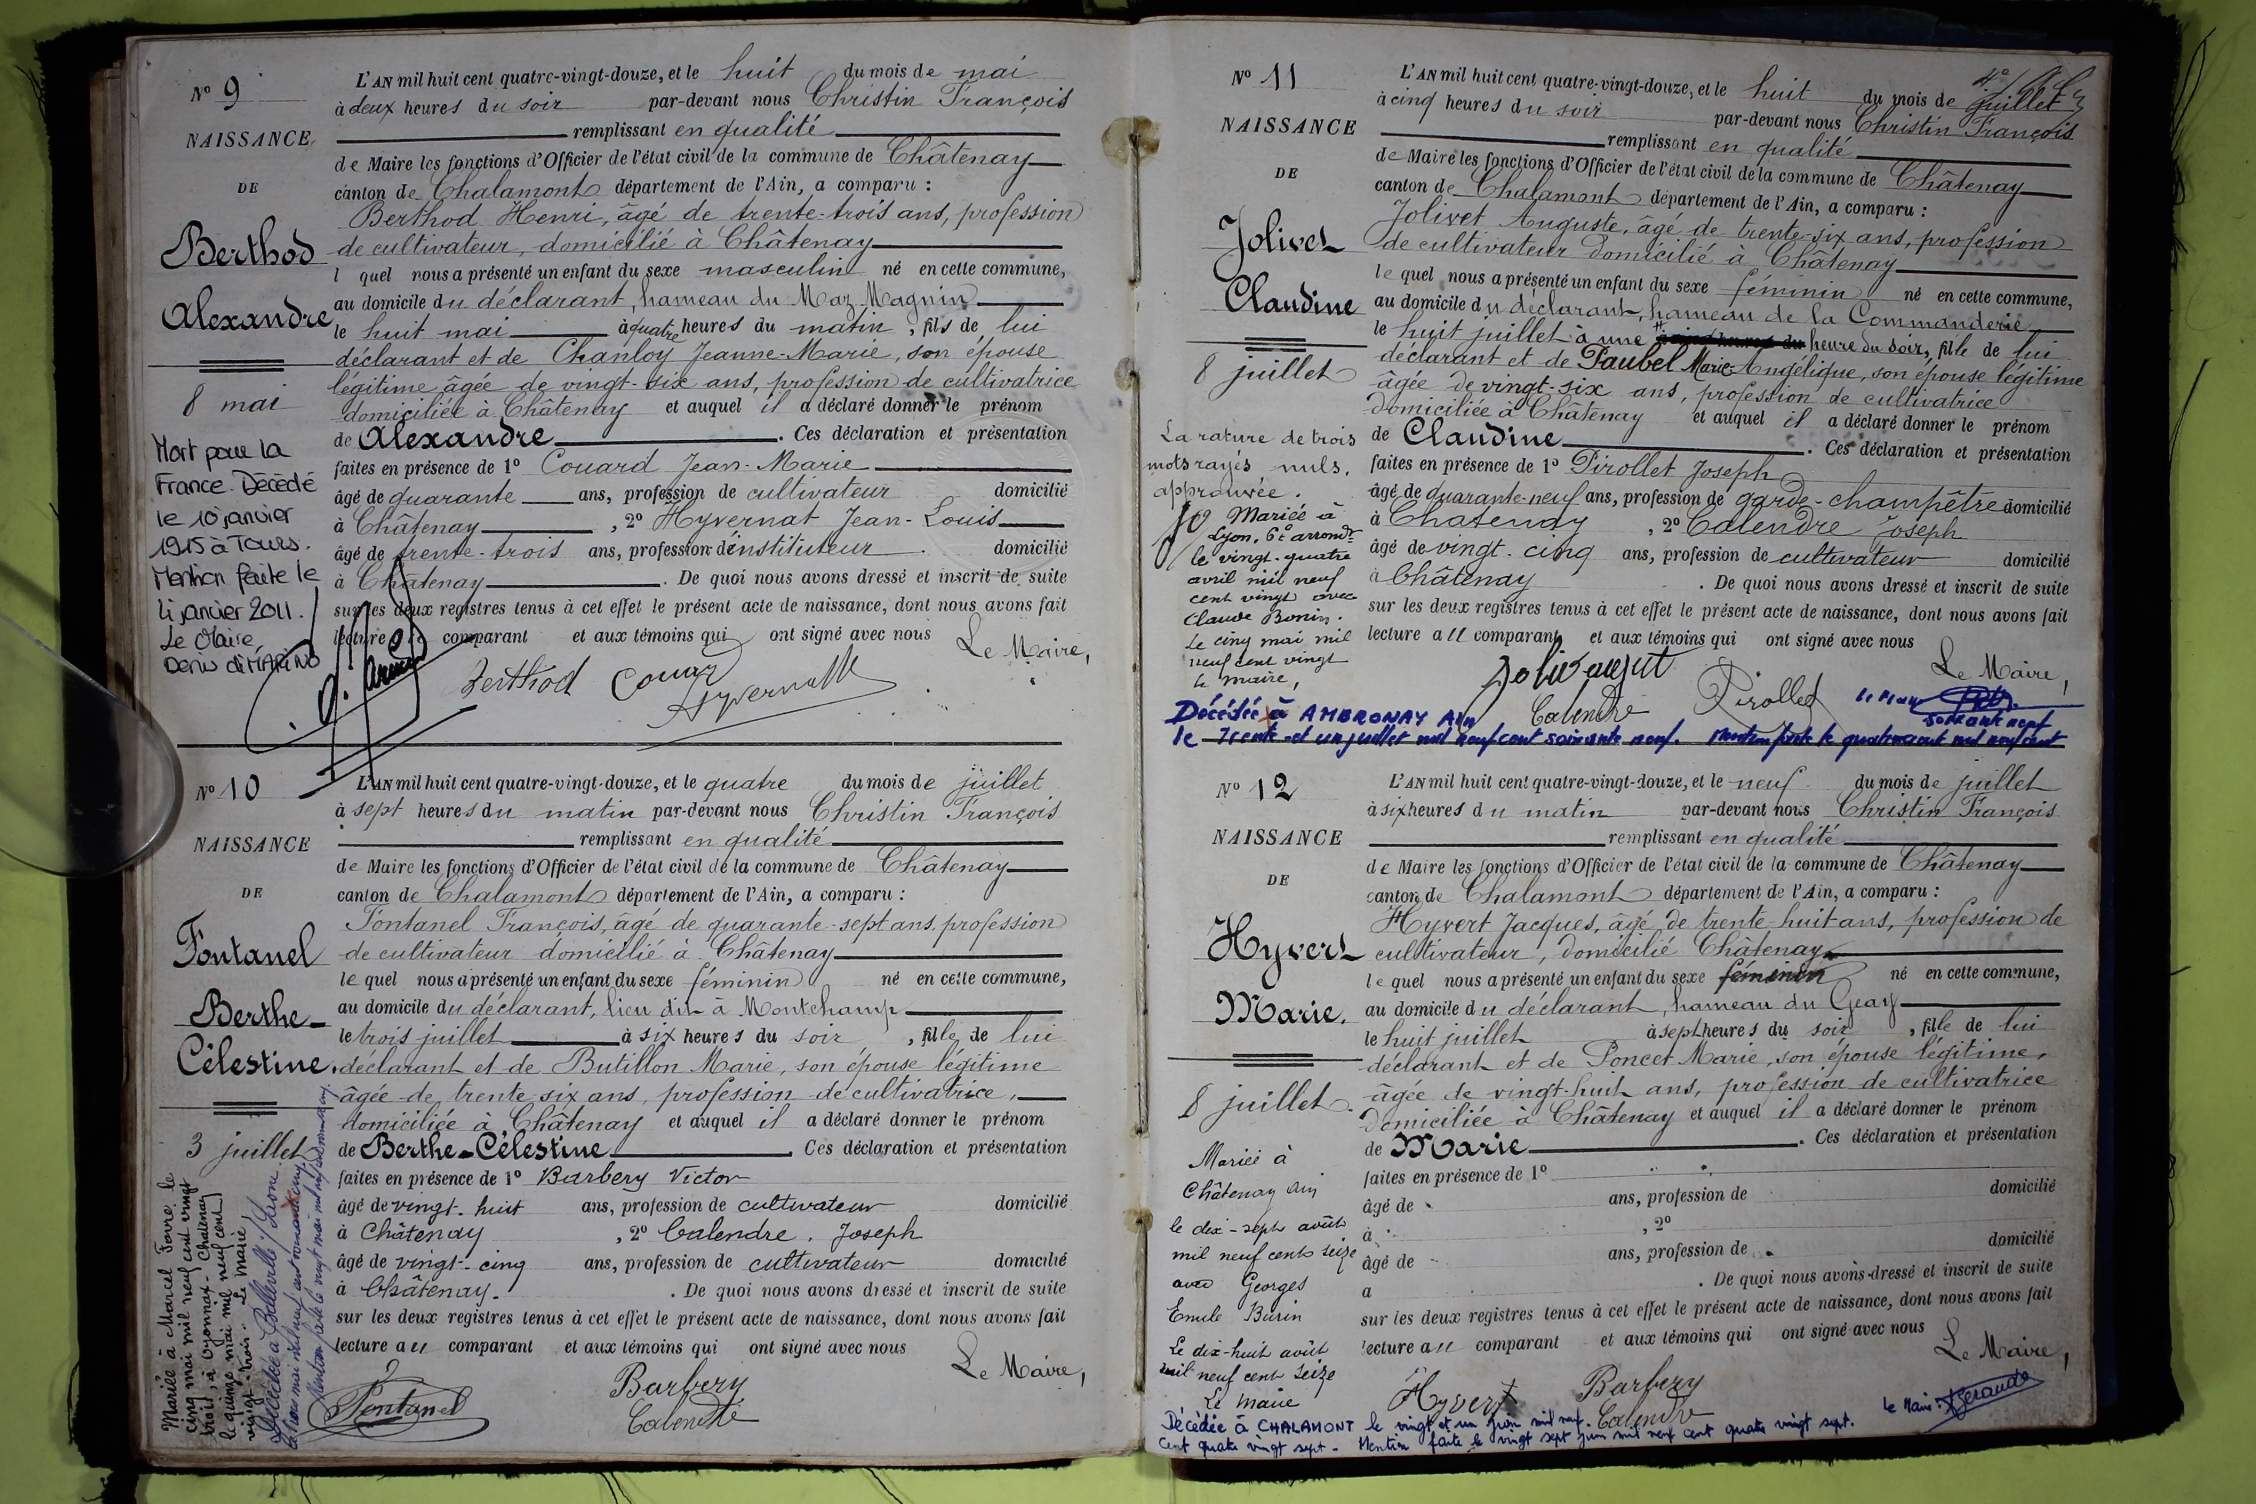 N° 9
NAISSANCE
DE
Berthod
Alexandre
8 mai
Mort pour la
France. Décédé
le 10 janvier
1915 à Tours.
Mention faite le
4 janvier 2011.
Le Maire
L'AN mil huit cent quatre-vingt-douze, et le huit du mois de mai
à deux heures du soir par-devant nous Christin François
remplissant en qualité
de Maire les fonctions d'Officier de l'état civil de la commune de Châtenay
canton de Chalamont département de l'Ain, a comparu :
Berthod Henri, âgé de trente-trois ans, profession
de cultivateur, domicilié à Châtenay
l quel nous a présenté un enfant du sexe masculin né en cette commune,
au domicile du déclarant, hameau du Maz-Magnin
le huit mai à quatre heures du matin, fils de lui
déclarant et de Chanloy Jeanne-Marie, son épouse
légitime âgée de vingt-six ans, profession de cultivatrice
domiciliée à Châtenay et auquel il a déclaré donner le prénom
de Alexandre. Ces déclaration et présentation
faites en présence de 1° Couard Jean-Marie
âgé de quarante ans, profession de cultivateur domicilié
à Châtenay, 2° Hyvernat Jean-Louis
âgé de trente-trois ans, profession d'instituteur. domicilié
à Châtenay. De quoi nous avons dressé et inscrit de suite
sur les deux registres tenus à cet effet le présent acte de naissance, dont nous avons fait
lecture au comparant et aux témoins qui ont signé avec nous
Le Maire,
Berthod Couard Hyvernat
N° 10
NAISSANCE
DE
Fontanel
Berthe-
Célestine.
3 juillet
Mariée à Marcel Favre le
cinq mai mil neuf cent vingt
trois, à Oyonnax - Chatenay
le quinze mai mil neuf cent
vingt-trois. Le maire
Décédée à Belleville/Saone
L'AN mil huit cent quatre-vingt-douze, et le quatre du mois de juillet
à sept heures du matin par-devant nous Christin François
remplissant en qualité
de Maire les fonctions d'Officier de l'état civil de la commune de Châtenay
canton de Chalamont département de l'Ain, a comparu :
Fontanel François, âgé de quarante-sept ans, profession
de cultivateur domicilié à Châtenay
le quel nous a présenté un enfant du sexe féminin né en cette commune,
au domicile du déclarant, lieu dit à Montchamp
le trois juillet à six heures du soir, fille de lui
déclarant et de Butillon Marie, son épouse légitime
âgée de trente six ans, profession de cultivatrice,
domiciliée à Châtenay et auquel il a déclaré donner le prénom
de Berthe-Célestine. Ces déclaration et présentation
faites en présence de 1° Barbery Victor
âgé de vingt-huit ans, profession de cultivateur domicilié
à Châtenay, 2° Calendre, Joseph
âgé de vingt-cinq ans, profession de cultivateur domicilié
à Châtenay. . De quoi nous avons dressé et inscrit de suite
sur les deux registres tenus à cet effet le présent acte de naissance, dont nous avons fait
lecture au comparant et aux témoins qui ont signé avec nous
Le Maire,
Fontanel Barbery
Calendre
N° 11
NAISSANCE
DE
Jolivet
Claudine
8 juillet
La rature de trois
mots rayés nuls,
approuvée.
Mariée à
Lyon, 6e arrondt
le vingt-quatre
avril mil neuf
cent vingt avec
Claude Bonin.
Le cinq mai mil
neuf cent vingt
le maire,
L'AN mil huit cent quatre-vingt-douze, et le huit du mois de juillet
à cinq heures du soir par-devant nous Christin François
remplissant en qualité
de Maire les fonctions d'Officier de l'état civil de la commune de Châtenay
canton de Chalamont département de l'Ain, a comparu :
Jolivet Auguste, âgé de trente-six ans, profession
de cultivateur domicilié à Châtenay
le quel nous a présenté un enfant du sexe féminin né en cette commune,
au domicile du déclarant, hameau de la Commanderie
le huit juillet à une heure du soir, fille de lui
déclarant et de Paubel Marie-Angélique, son épouse légitime
âgée de vingt-six ans, profession de cultivatrice
domiciliée à Châtenay et auquel il a déclaré donner le prénom
de Claudine. Ces déclaration et présentation
faites en présence de 1° Pirollet Joseph
âgé de quarante-neuf ans, profession de garde-champêtre domicilié
à Chatenay, 2° Calendre Joseph
âgé de vingt-cinq ans, profession de cultivateur domicilié
à Châtenay. De quoi nous avons dressé et inscrit de suite
sur les deux registres tenus à cet effet le présent acte de naissance, dont nous avons fait
lecture au comparant et aux témoins qui ont signé avec nous
Le Maire,
Calendre Pirollet
Décédée à AMBRONAY Ain
le trente-et un juillet mil neuf cent soixante neuf. Mention faite le quatre aout mil neuf cent
soixante neuf
N° 12
NAISSANCE
DE
Hyvert
Marie.
8 juillet.
Mariée à
Châtenay Ain
le dix-sept août
mil neuf cent seize
avec Georges
Emile Burin
Le dix-huit août
mil neuf cent seize
Le maire
L'AN mil huit cent quatre-vingt-douze, et le neuf du mois de juillet
à six heures du matin par-devant nous Christin François
remplissant en qualité
de Maire les fonctions d'Officier de l'état civil de la commune de Châtenay
canton de Chalamont département de l'Ain, a comparu :
Hyvert Jacques, âgé de trente-huit ans, profession de
cultivateur, domicilié Châtenay
le quel nous a présenté un enfant du sexe féminin né en cette commune,
au domicile du déclarant, hameau du Geay
le huit juillet à sept heures du soir, fille de lui
déclarant et de Poncet Marie, son épouse légitime,
âgée de vingt-huit ans, profession de cultivatrice
domiciliée à Châtenay et auquel il a déclaré donner le prénom
de Marie. Ces déclaration et présentation
faites en présence de 1°
âgé de ans, profession de domicilié
à , 2°
âgé de ans, profession de domicilié
a . De quoi nous avons dressé et inscrit de suite
sur les deux registres tenus à cet effet le présent acte de naissance, dont nous avons fait
lecture au comparant et aux témoins qui ont signé avec nous
Le Maire,
Hyvert Barbery
Calendre
Décédée à CHALAMONT le vingt et un juin mil neuf
cent quatre vingt sept - Mention faite le vingt sept juin mil neuf cent quatre vingt sept.
le Maire